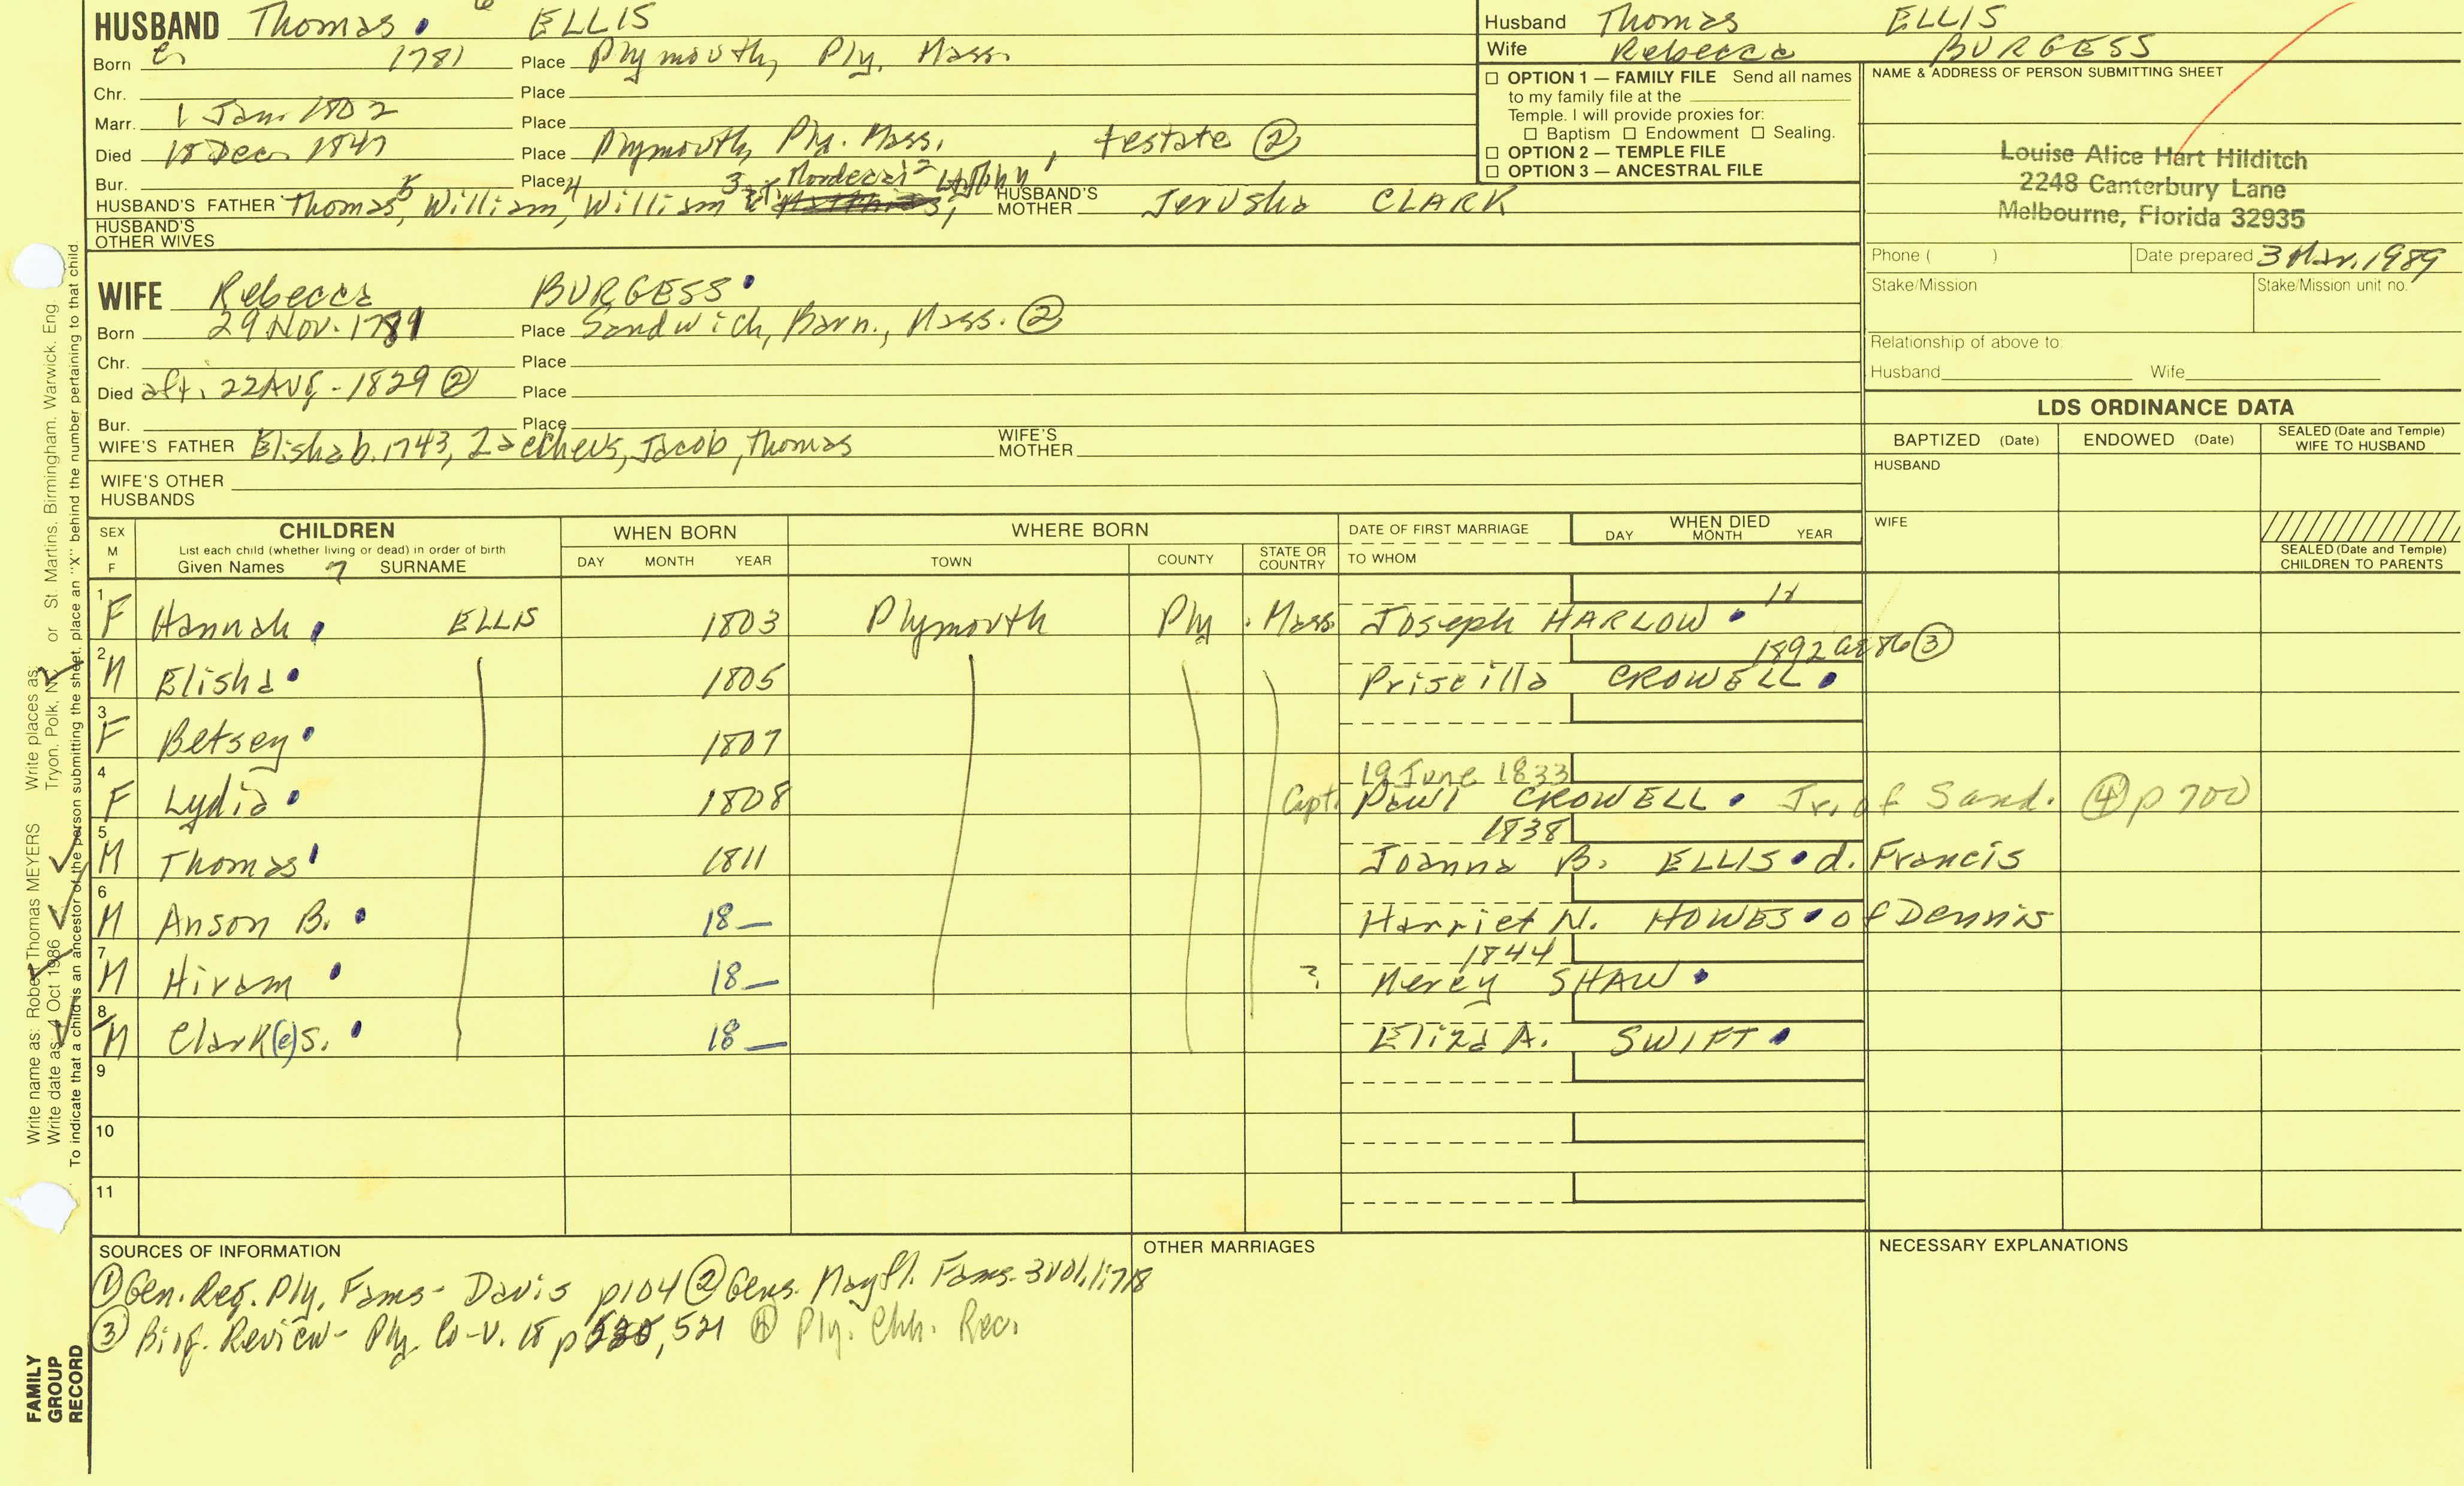 HUSBAND Thomas 6 ELLIS
Born c. 1781 Place Plymouth, Ply, Mass.
Chr. Place
Marr. 1 Jan. 1802 Place
Died 18 Dec. 1847 Place Plymouth, Ply. Mass., testate ②
Bur. Place
HUSBAND'S FATHER Thomas 5, William 4, William 3, Mordecai 2 HUSBAND'S MOTHER Jerusha CLARK
HUSBAND'S OTHER WIVES
Husband Thomas ELLIS
Wife Rebecca BURGESS
☐ OPTION 1 — FAMILY FILE Send all names
to my family file at the
Temple. I will provide proxies for:
☐ Baptism ☐ Endowment ☐ Sealing.
☐ OPTION 2 — TEMPLE FILE
☐ OPTION 3 — ANCESTRAL FILE
NAME & ADDRESS OF PERSON SUBMITTING SHEET
Louise Alice Hart Hilditch
2248 Canterbury Lane
Melbourne, Florida 32935
Phone ( ) Date prepared 3 Mar. 1989
Stake/Mission Stake/Mission unit no.
Relationship of above to:
Husband Wife
WIFE Rebecca BURGESS
Born 29 Nov. 1781 Place Sandwich, Barn., Mass. ②
Chr. Place
Died aft. 22 AUG - 1829 ② Place
Bur. Place
WIFE'S FATHER Elisha b. 1743, Zaccheus, Jacob, Thomas WIFE'S MOTHER
WIFE'S OTHER HUSBANDS
LDS ORDINANCE DATA
BAPTIZED (Date) ENDOWED (Date) SEALED (Date and Temple) WIFE TO HUSBAND
HUSBAND
WIFE
SEALED (Date and Temple) CHILDREN TO PARENTS
SEX M F
CHILDREN
List each child (whether living or dead) in order of birth
Given Names 7 SURNAME
WHEN BORN
DAY MONTH YEAR
WHERE BORN
TOWN COUNTY STATE OR COUNTRY
DATE OF FIRST MARRIAGE
TO WHOM
WHEN DIED
DAY MONTH YEAR
1 F Hannah ELLIS 1803 Plymouth Ply. Mass. Joseph HARLOW
2 M Elisha 1805 Priscilla CROWELL 1892 ae 86 ③
3 F Betsey 1807
4 F Lydia 1808 19 June 1833 Capt. Paul CROWELL Jr. of Sand. ④ p 700
5 M Thomas 1811 1838 Joanna B. ELLIS d. Francis
6 M Anson B. 18— Harriet N. HOWES of Dennis
7 M Hiram 18— ? 1844 Mercy SHAW
8 M Clark(e) S. 18— Eliza A. SWIFT
9
10
11
SOURCES OF INFORMATION
① Gen. Reg. Ply. Fams - Davis p104 ② Gens. Mayfl. Fams - 3 vol. 1:718
③ Biog. Review - Ply Co - V. 18 p 521 ④ Ply. Chh. Rec.
OTHER MARRIAGES
NECESSARY EXPLANATIONS
Write name as: Robert Thomas MEYERS Write places as: Tryon, Polk, NC or St. Martins, Birmingham, Warwick, Eng
Write date as: 4 Oct 1986
To indicate that a child is an ancestor of the person submitting the sheet, place an "X" behind the number pertaining to that child.
FAMILY
GROUP
RECORD